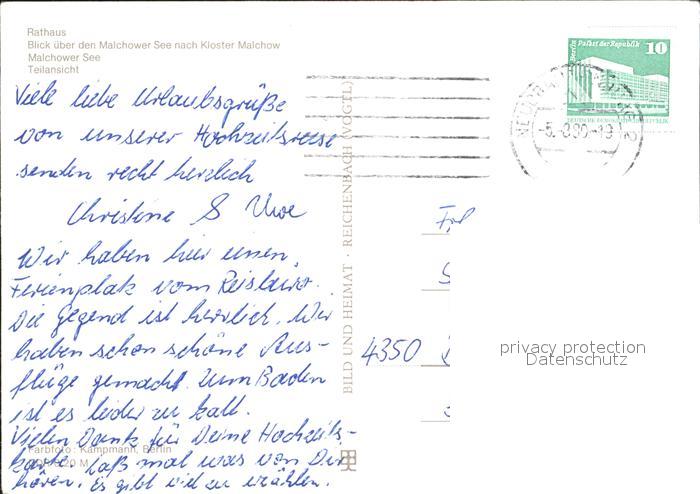 Rathaus
Blick über den Malchower See nach Kloster Malchow
Malchower See
Teilansicht
Viele liebe Urlaubsgrüße
von unserer Hochzeitsreise
senden recht herzlich
Christine & Uwe
Wir haben hier einen
Ferienplatz vom Reisebüro.
Die Gegend ist herrlich. Wir
haben schon schöne Aus-
flüge gemacht. Zum Baden
ist es leider zu kalt.
Vielen Dank für Deine Hochzeits-
karte. Laß mal was von Dir
hören. Es gibt viel zu erzählen.
Farbfoto: Kampmann, Berlin
20 M
BILD UND HEIMAT · REICHENBACH (VOGTL)
Berlin Palast der Republik 10
DEUTSCHE DEMOKRATISCHE REPUBLIK
-5. 80-19
4350
privacy protection
Datenschutz